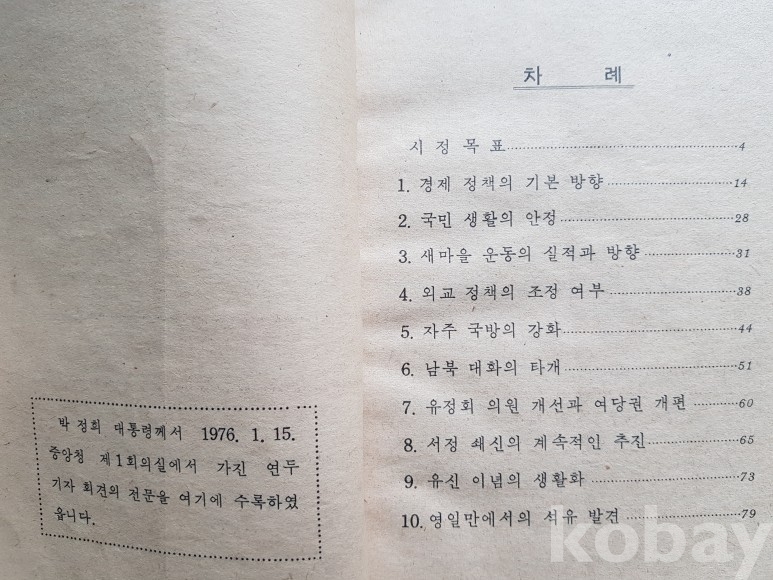 박 정희 대통령께서 1976. 1. 15.
중앙청 제1회의실에서 가진 연두
기자 회견의 전문을 여기에 수록하였
읍니다.
차 례
시 정 목 표 4
1. 경제 정책의 기본 방향 14
2. 국민 생활의 안정 28
3. 새마을 운동의 실적과 방향 31
4. 외교 정책의 조정 여부 38
5. 자주 국방의 강화 44
6. 남북 대화의 타개 51
7. 유정회 의원 개선과 여당권 개편 60
8. 서정 쇄신의 계속적인 추진 65
9. 유신 이념의 생활화 73
10. 영일만에서의 석유 발견 79
kobay